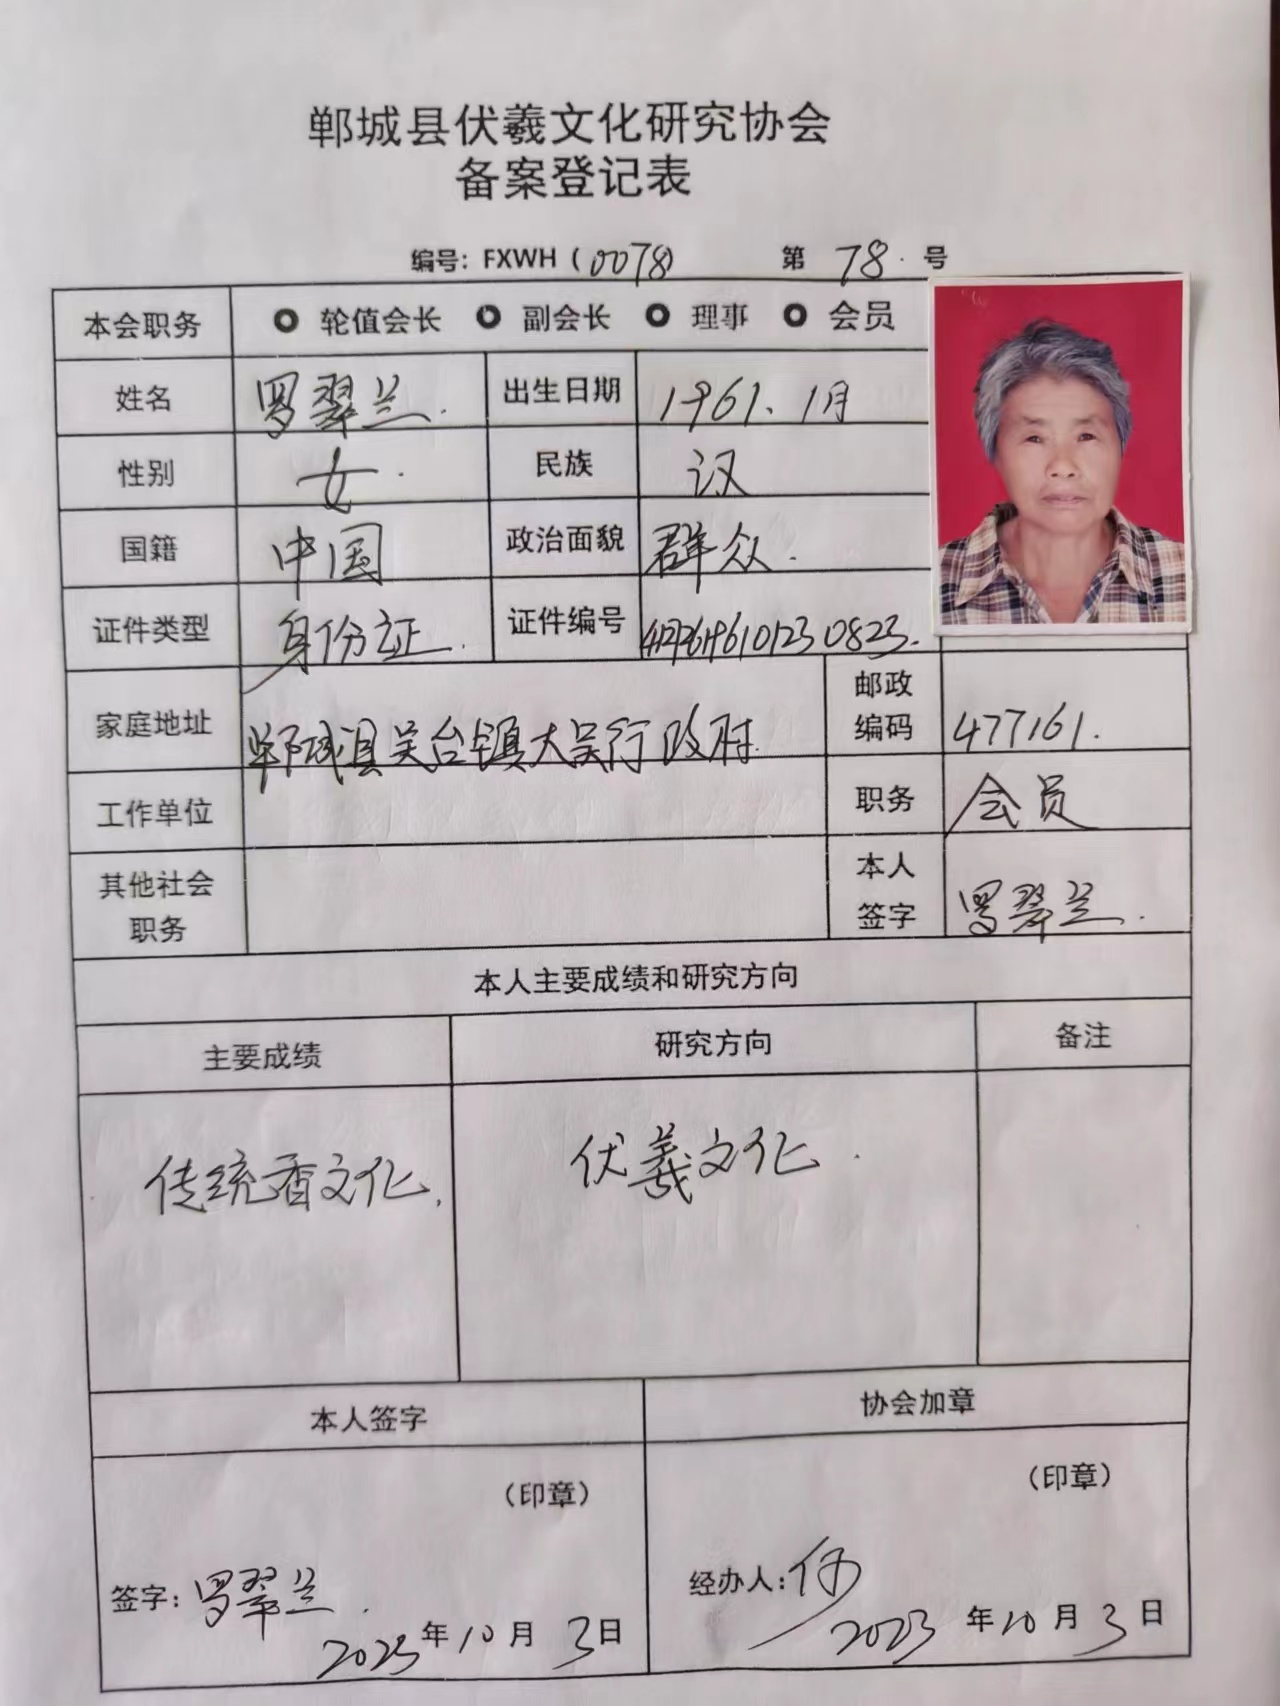 郸城县伏羲文化研究协会
备案登记表
编号: FXWH (0078) 第 78. 号
本会职务 轮值会长 副会长 理事 会员
姓名 罗翠兰. 出生日期 1961.1月
性别 女. 民族 汉
国籍 中国 政治面貌 群众.
证件类型 身份证. 证件编号
家庭地址 郸城县吴台镇大吴行政村 邮政编码 477161.
工作单位 职务 会员
其他社会职务 本人签字 罗翠兰.
本人主要成绩和研究方向
主要成绩 研究方向 备注
传统香文化. 伏羲文化.
本人签字 协会加章
(印章) (印章)
签字: 罗翠兰. 经办人:
2023年10月3日 2023年10月3日